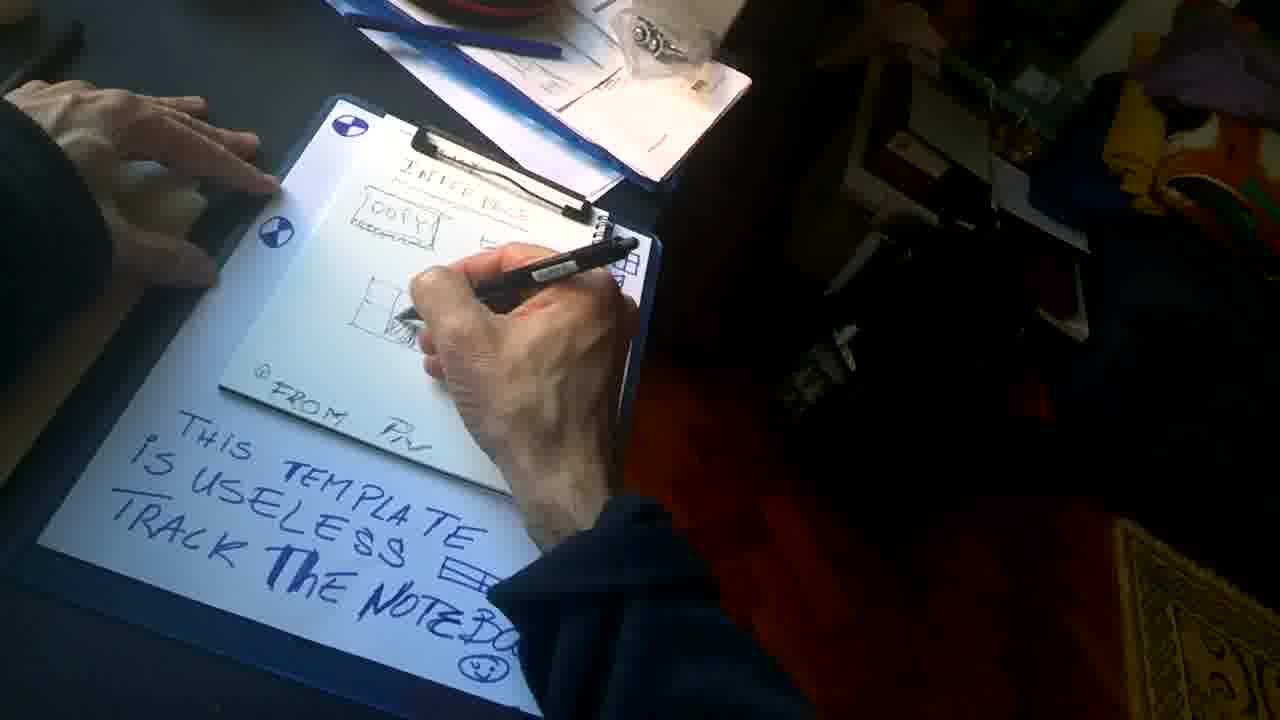 INTERFACE
COPY
① FROM
THIS TEMPLATE
iS USELESS
TRACK ThE NOTEBO